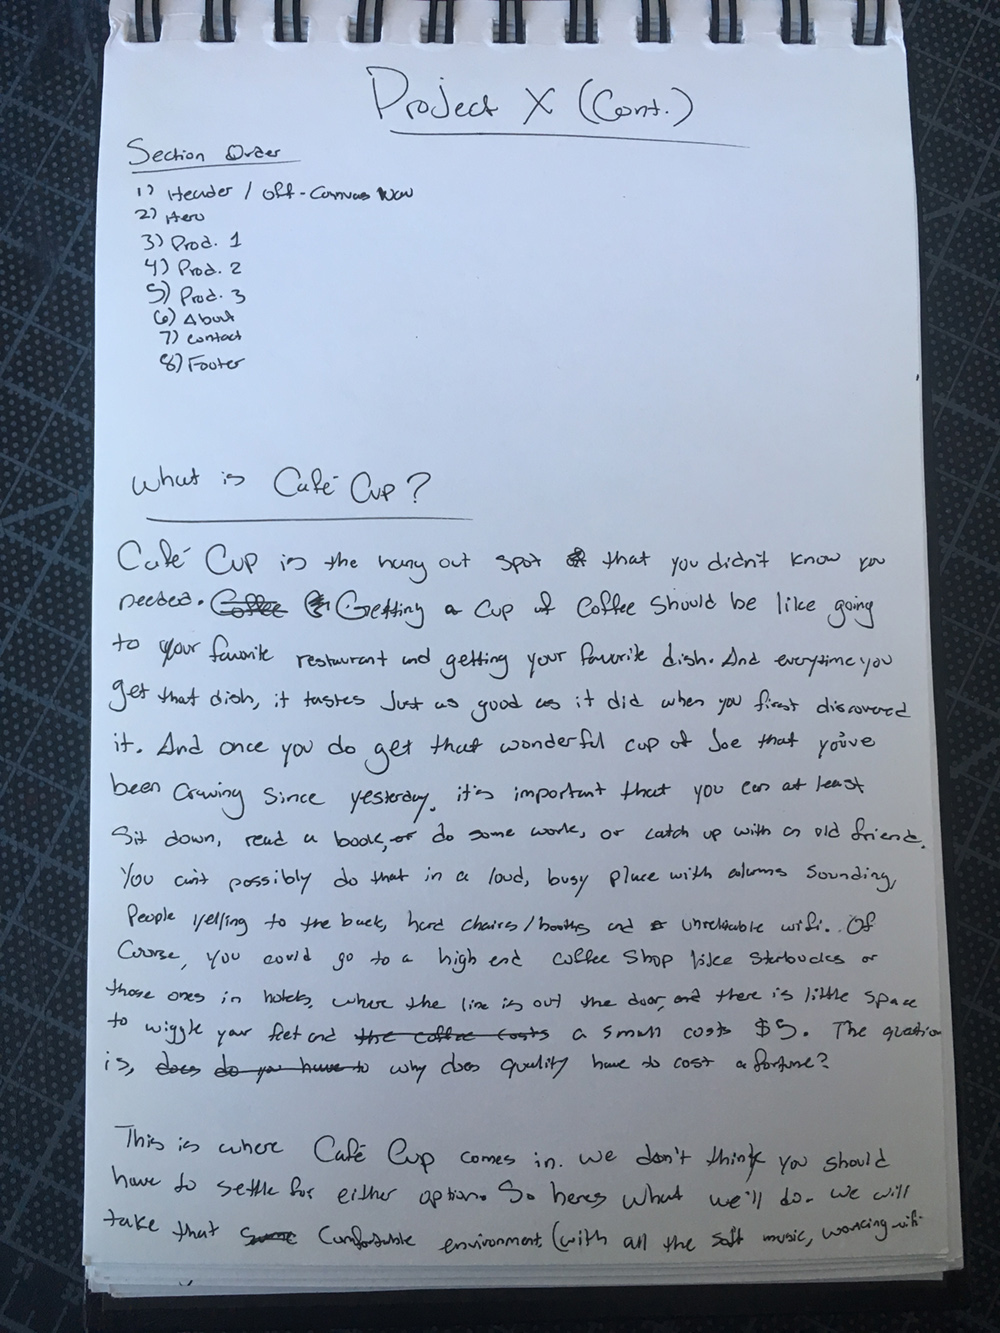 Project X (Cont.)
Section Order
1) Header / Off-Canvas Nav
2) Hero
3) Prod. 1
4) Prod. 2
5) Prod. 3
6) About
7) Contact
8) Footer
What is Café Cup?
Café Cup is the hang out spot that you didn't know you
needed. Coffee Getting a cup of coffee should be like going
to your favorite restaurant and getting your favorite dish. And everytime you
get that dish, it tastes just as good as it did when you first discovered
it. And once you do get that wonderful cup of Joe that you've
been craving since yesterday, it's important that you can at least
sit down, read a book, or do some work, or catch up with an old friend.
You can't possibly do that in a loud, busy place with alarms sounding,
people yelling to the back, hard chairs/booths and unreliable wifi. Of
course, you could go to a high end coffee shop like Starbucks or
those ones in hotels, where the line is out the door, and there is little space
to wiggle your feet and the coffee costs a small costs $5. The question
is, does do you have to why does quality have to cost a fortune?
This is where Café Cup comes in. We don't think you should
have to settle for either option. So heres what we'll do. We will
take that some comfortable environment (with all the soft music, working wifi